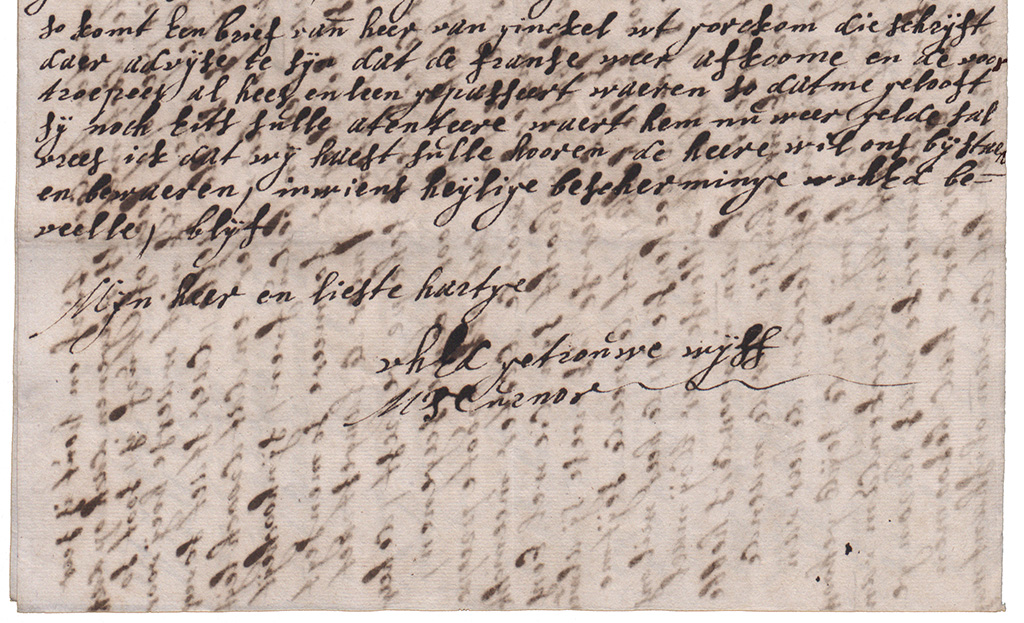 so komt een brief van heer van ginckel ut gorckom die schryft
daer advyse te syn dat de franse weer afkoome en de voor
troepees al hees en leen gepasseert waeren so datme gelooft
sy noch iits sulle atenteere waert hem nu weer gelde sal
vrees ick dat wy haest sulle hooren, de heere wil ons bystaen
en bewaeren, in wiens heylige bescherminge uhEd be-
veelle, blyf
Myn heer en lieste hartye
uhEd getrouwe wyff
M Turnor